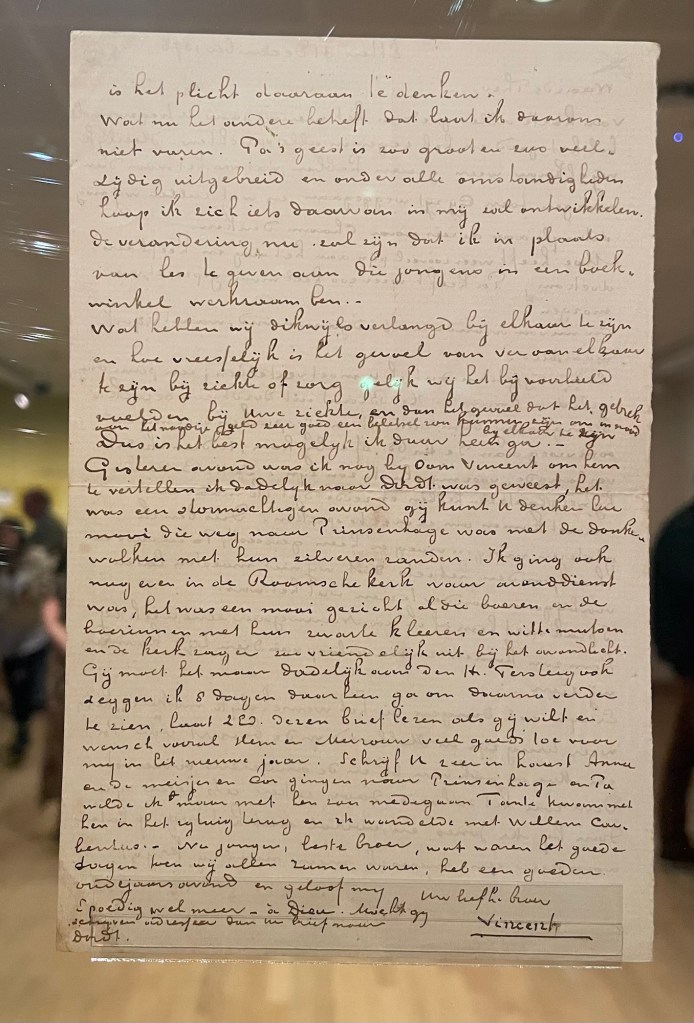 is het plicht daaraan te denken.
Wat nu het andere betreft dat laat ik daarom
niet varen. Pa's geest is zoo groot en zoo veel-
zijdig uitgebreid en onder alle omstandigheden
hoop ik zich iets daarvan in mij zal ontwikkelen.
de verandering nu zal zijn dat ik in plaats
van les te geven aan die jongens in een boek-
winkel werkzaam ben. -
Wat hebben wij dikwijls verlangd bij elkaar te zijn
en hoe vreesselijk is het gevoel van ver van elkaar
te zijn bij ziekte of zorg gelijk wij het bijvoorbeeld
voelden bij Uwe ziekte, en dan het gevoel dat het gebrek
aan het noodige geld een beletsel zou kunnen zijn om in nood
bij elkaar te zijn
Dus is het best mogelijk ik daar heen ga. -
Gisteren avond was ik nog bij Oom Vincent om hem
te vertellen ik dadelijk naar Dordt was geweest, het
was een stormachtigen avond gij kunt U denken hoe
mooi die weg naar Prinsenhage was met de donkere
wolken met hun zilveren randen. Ik ging ook
nog even in de Roomsche kerk waar avonddienst
was, het was een mooi gezicht al die boeren en de
boerinnen met hun zwarte kleeren en witte mutsen
en de kerk zag er zoo vriendelijk uit bij het avondlicht.
Gij moet het maar dadelijk aan den H. Tersteeg ook
zeggen ik 8 dagen daarheen ga om daarna verder
te zien, laat ZEd. dezen brief lezen als gij wilt en
wensch vooral Hem en Mevrouw veel goeds toe voor
mij in het nieuwe jaar. Schrijf U zeer in haast Anna
en de meisjes en Cor gingen naar Prinsenhage en Pa
wilde ik maar met hen zou medegaan Tante kwam met
hen in het rijtuig terug en ik wandelde met Willem Car-
bentus. - Nu jongen, beste broer, wat waren het goede
dagen toen wij allen zamen waren, heb een goeden
oudejaarsavond en geloof mij
Uw liefh. broer
Spoedig wel meer - à Dieu. Mocht gij
Vincent
schrijven adresseer dan Uw brief naar
Dordt.